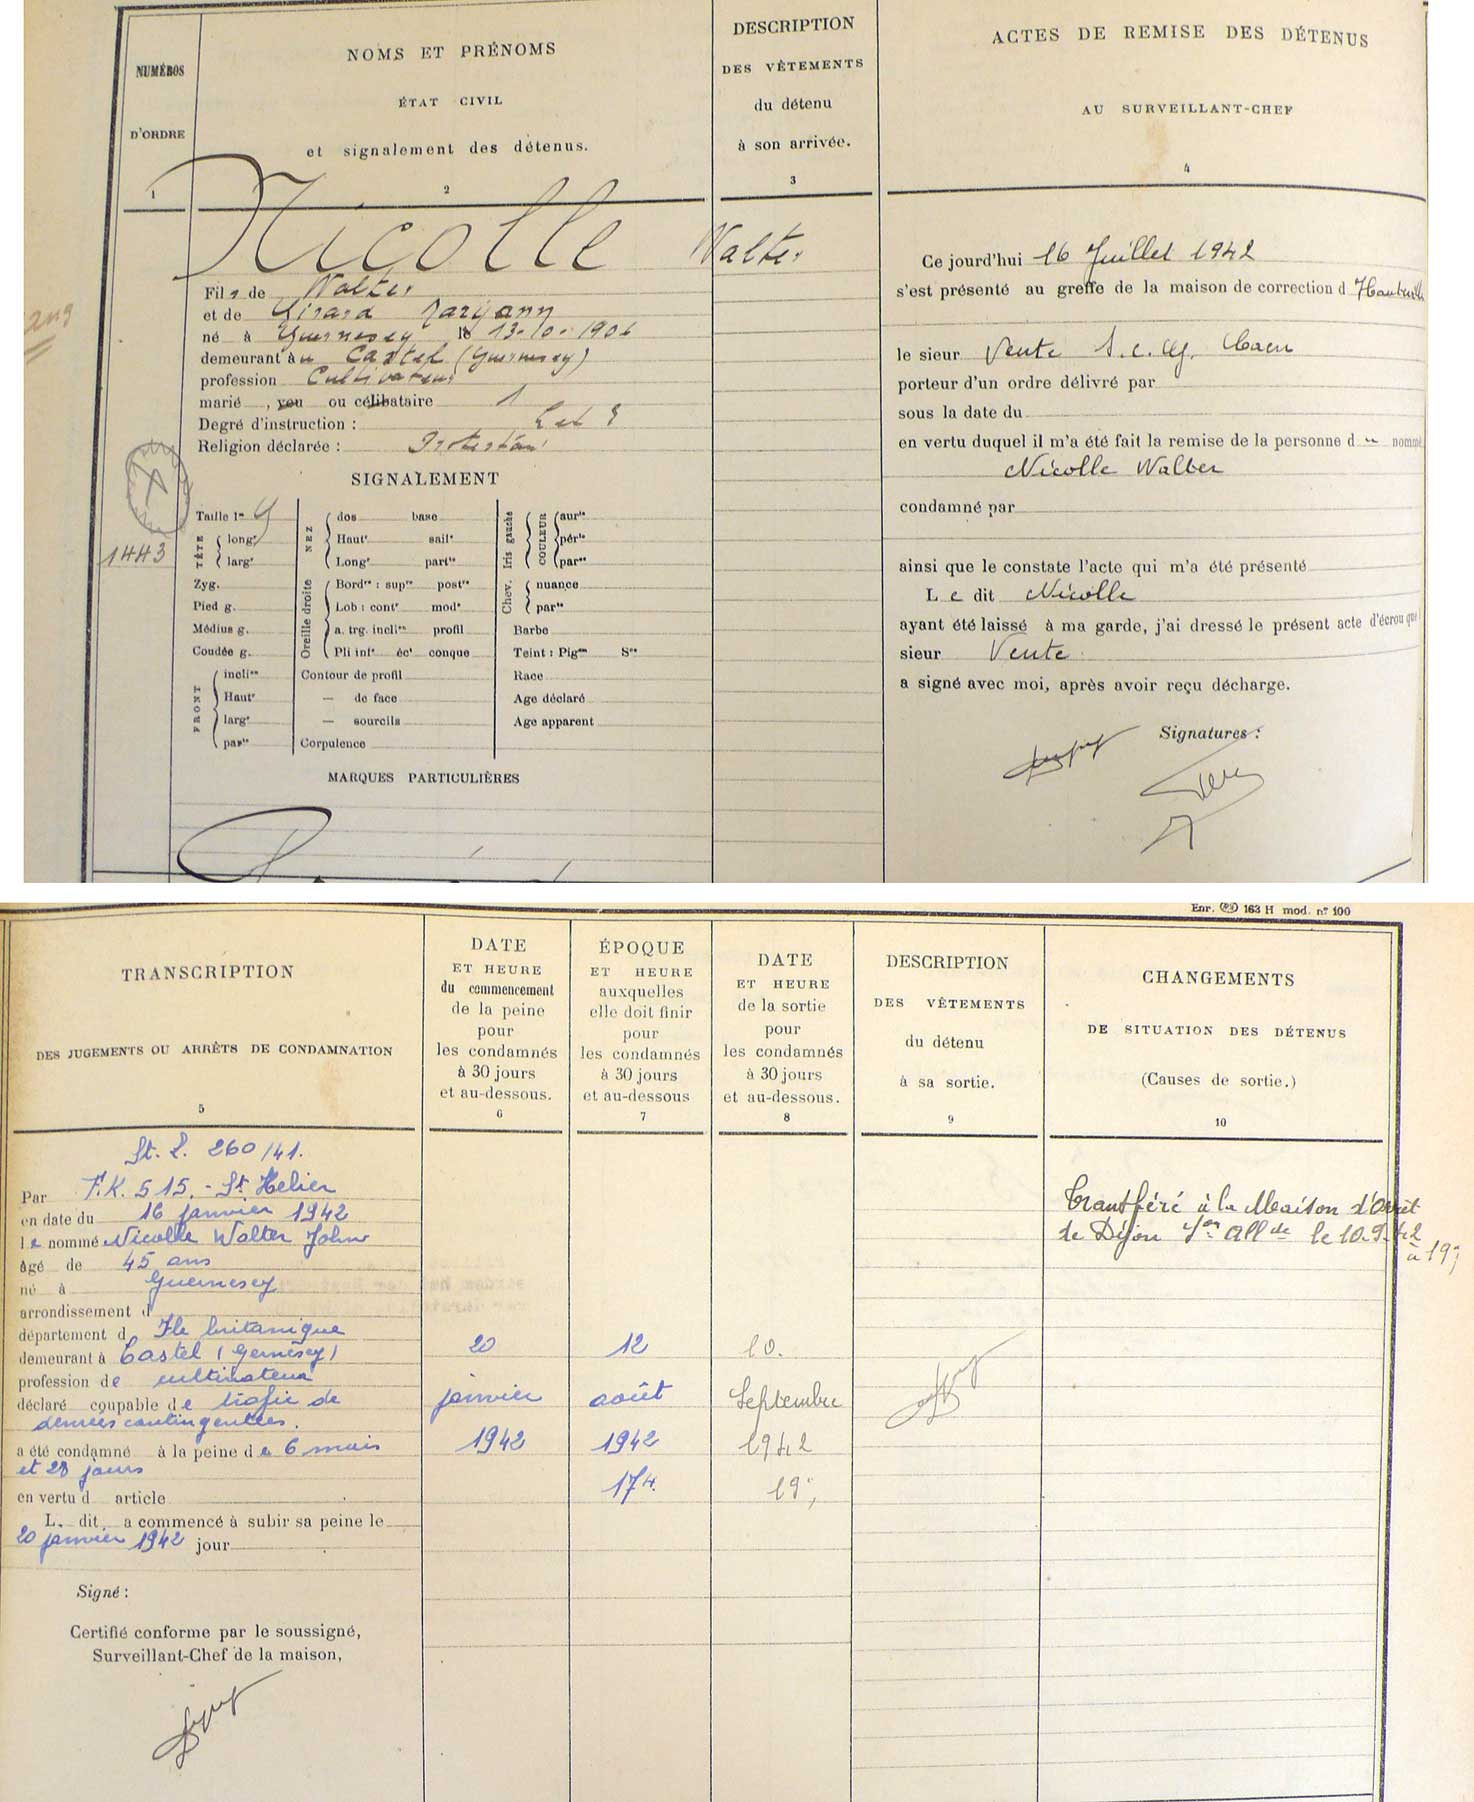 NUMÉROS
D'ORDRE
1
NOMS ET PRÉNOMS
ÉTAT CIVIL
et signalement des détenus.
2
DESCRIPTION
DES VÊTEMENTS
du détenu
à son arrivée.
3
ACTES DE REMISE DES DÉTENUS
AU SURVEILLANT-CHEF
4
1443
Nicolle Walter
Fils de Walter
et de Girard Maryann
né à Guernesey le 1906
demeurant à Castel (Guernesey)
profession Cultivateur
marié, veu ou célibataire 1
Degré d'instruction :
Religion déclarée : Protestan
SIGNALEMENT
Taille 1m
TÊTE
long
larg
Zyg.
Pied g.
Médius g.
Coudée g.
FRONT
incli
Haut
larg
par
NEZ
dos base
Haut sail
Long part
Oreille droite
Bord : sup post
Lob : cont mod
a. trg. incli profil
Pli inf éc conque
Contour de profil
— de face
— sourcils
Corpulence
Iris gauche
COULEUR
aur
pér
par
Chev.
nuance
par
Barbe
Teint : Pig S
Race
Age déclaré
Age apparent
MARQUES PARTICULIÈRES
Ce jourd'hui 16 Juillet 1942
s'est présenté au greffe de la maison de correction d
le sieur Vente Caen
porteur d'un ordre délivré par
sous la date du
en vertu duquel il m'a été fait la remise de la personne d u nommé
Nicolle Walter
condamné par
ainsi que le constate l'acte qui m'a été présenté
Le dit Nicolle
ayant été laissé à ma garde, j'ai dressé le présent acte d'écrou que
sieur Vente
a signé avec moi, après avoir reçu décharge.
Signatures :
Enr. 163 H mod. n° 100
TRANSCRIPTION
DES JUGEMENTS OU ARRÊTS DE CONDAMNATION
5
DATE
ET HEURE
du commencement
de la peine
pour
les condamnés
à 30 jours
et au-dessous.
6
ÉPOQUE
ET HEURE
auxquelles
elle doit finir
pour
les condamnés
à 30 jours
et au-dessous
7
DATE
ET HEURE
de la sortie
pour
les condamnés
à 30 jours
et au-dessous.
8
DESCRIPTION
DES VÊTEMENTS
du détenu
à sa sortie.
9
CHANGEMENTS
DE SITUATION DES DÉTENUS
(Causes de sortie.)
10
St. L. 260/41.
Par F.K. 515. - St Helier
en date du 16 janvier 1942
le nommé Nicolle Walter John
âgé de 45 ans
né à Guernesey
arrondissement d
département d Ile britanique
demeurant à Castel (Gernesey)
profession de cultivateur
déclaré coupable de trafic de
denrées contingentées.
a été condamné à la peine de 6 mois
et 28 jours
en vertu d article
L. dit a commencé à subir sa peine le
20 janvier 1942 jour
Signé :
Certifié conforme par le soussigné,
Surveillant-Chef de la maison,
20
janvier
1942
12
août
1942
17 H.
10.
Septembre
1942
19
Transféré à la Maison d'Arrêt
de Dijon All de le 10.9.42
à 19